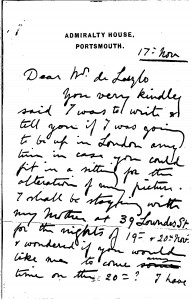 ADMIRALTY HOUSE,
PORTSMOUTH.
17th Nov
Dear Mr de Laszlo
You very kindly
said I was to write &
tell you if I was going
to be up in London any
time in case you could
fit in a sitting for the
alteration of my picture.
I shall be staying with
my Mother at 39 Lowndes St
for the nights of 19th & 20th Nov.
& wondered if you would
like me to come
time on the 20th? I hear